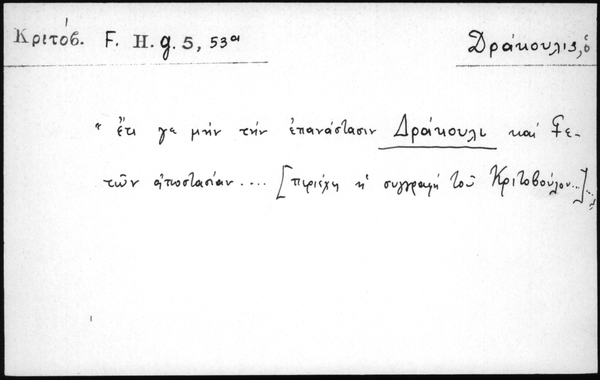 Κριτόβ. F. H. g. 5, 53a Δράκουλις, ὁ
" ἔτι γε μὴν τὴν ἐπανάστασιν Δράκουλι καὶ Γε-
τῶν ἀποστασίαν.... [περιέχει ἡ συγγραφὴ τοῦ Κριτοβούλου...]...